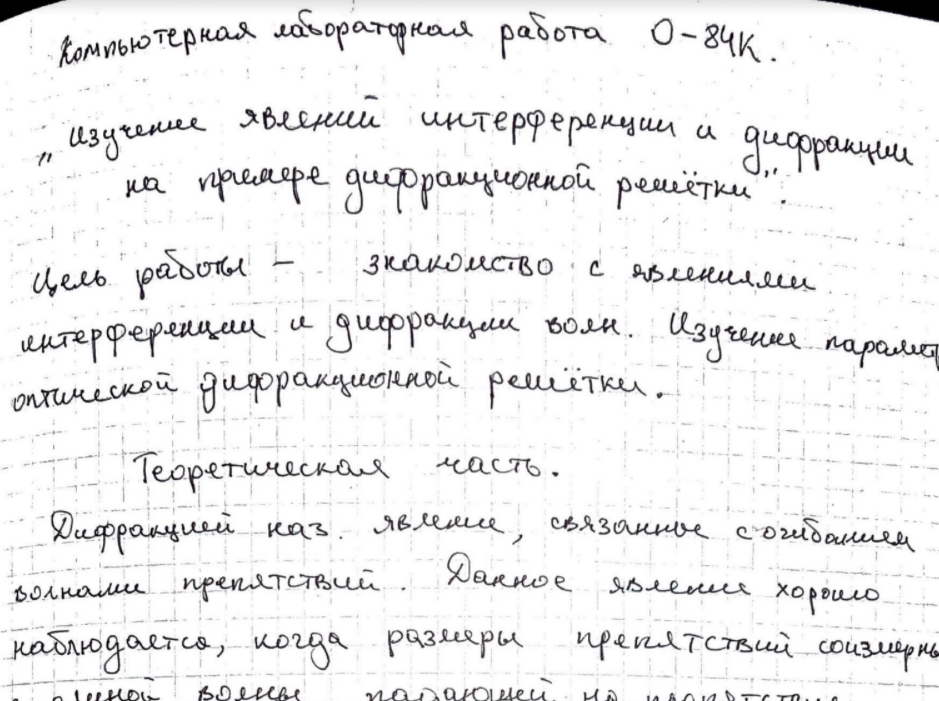 Компьютерная лабораторная работа О-84К.
„Изучение явлений интерференции и дифракции
на примере дифракционной решётки".
Цель работы – знакомство с явлениями
интерференции и дифракции волн. Изучение парамет
оптической дифракционной решётки.
Теоретическая часть.
Дифракцией наз. явление, связанное с огибанием
волнами препятствий. Данное явление хорошо
наблюдается, когда размеры препятствий соизмерны
волны падающей на препятствие